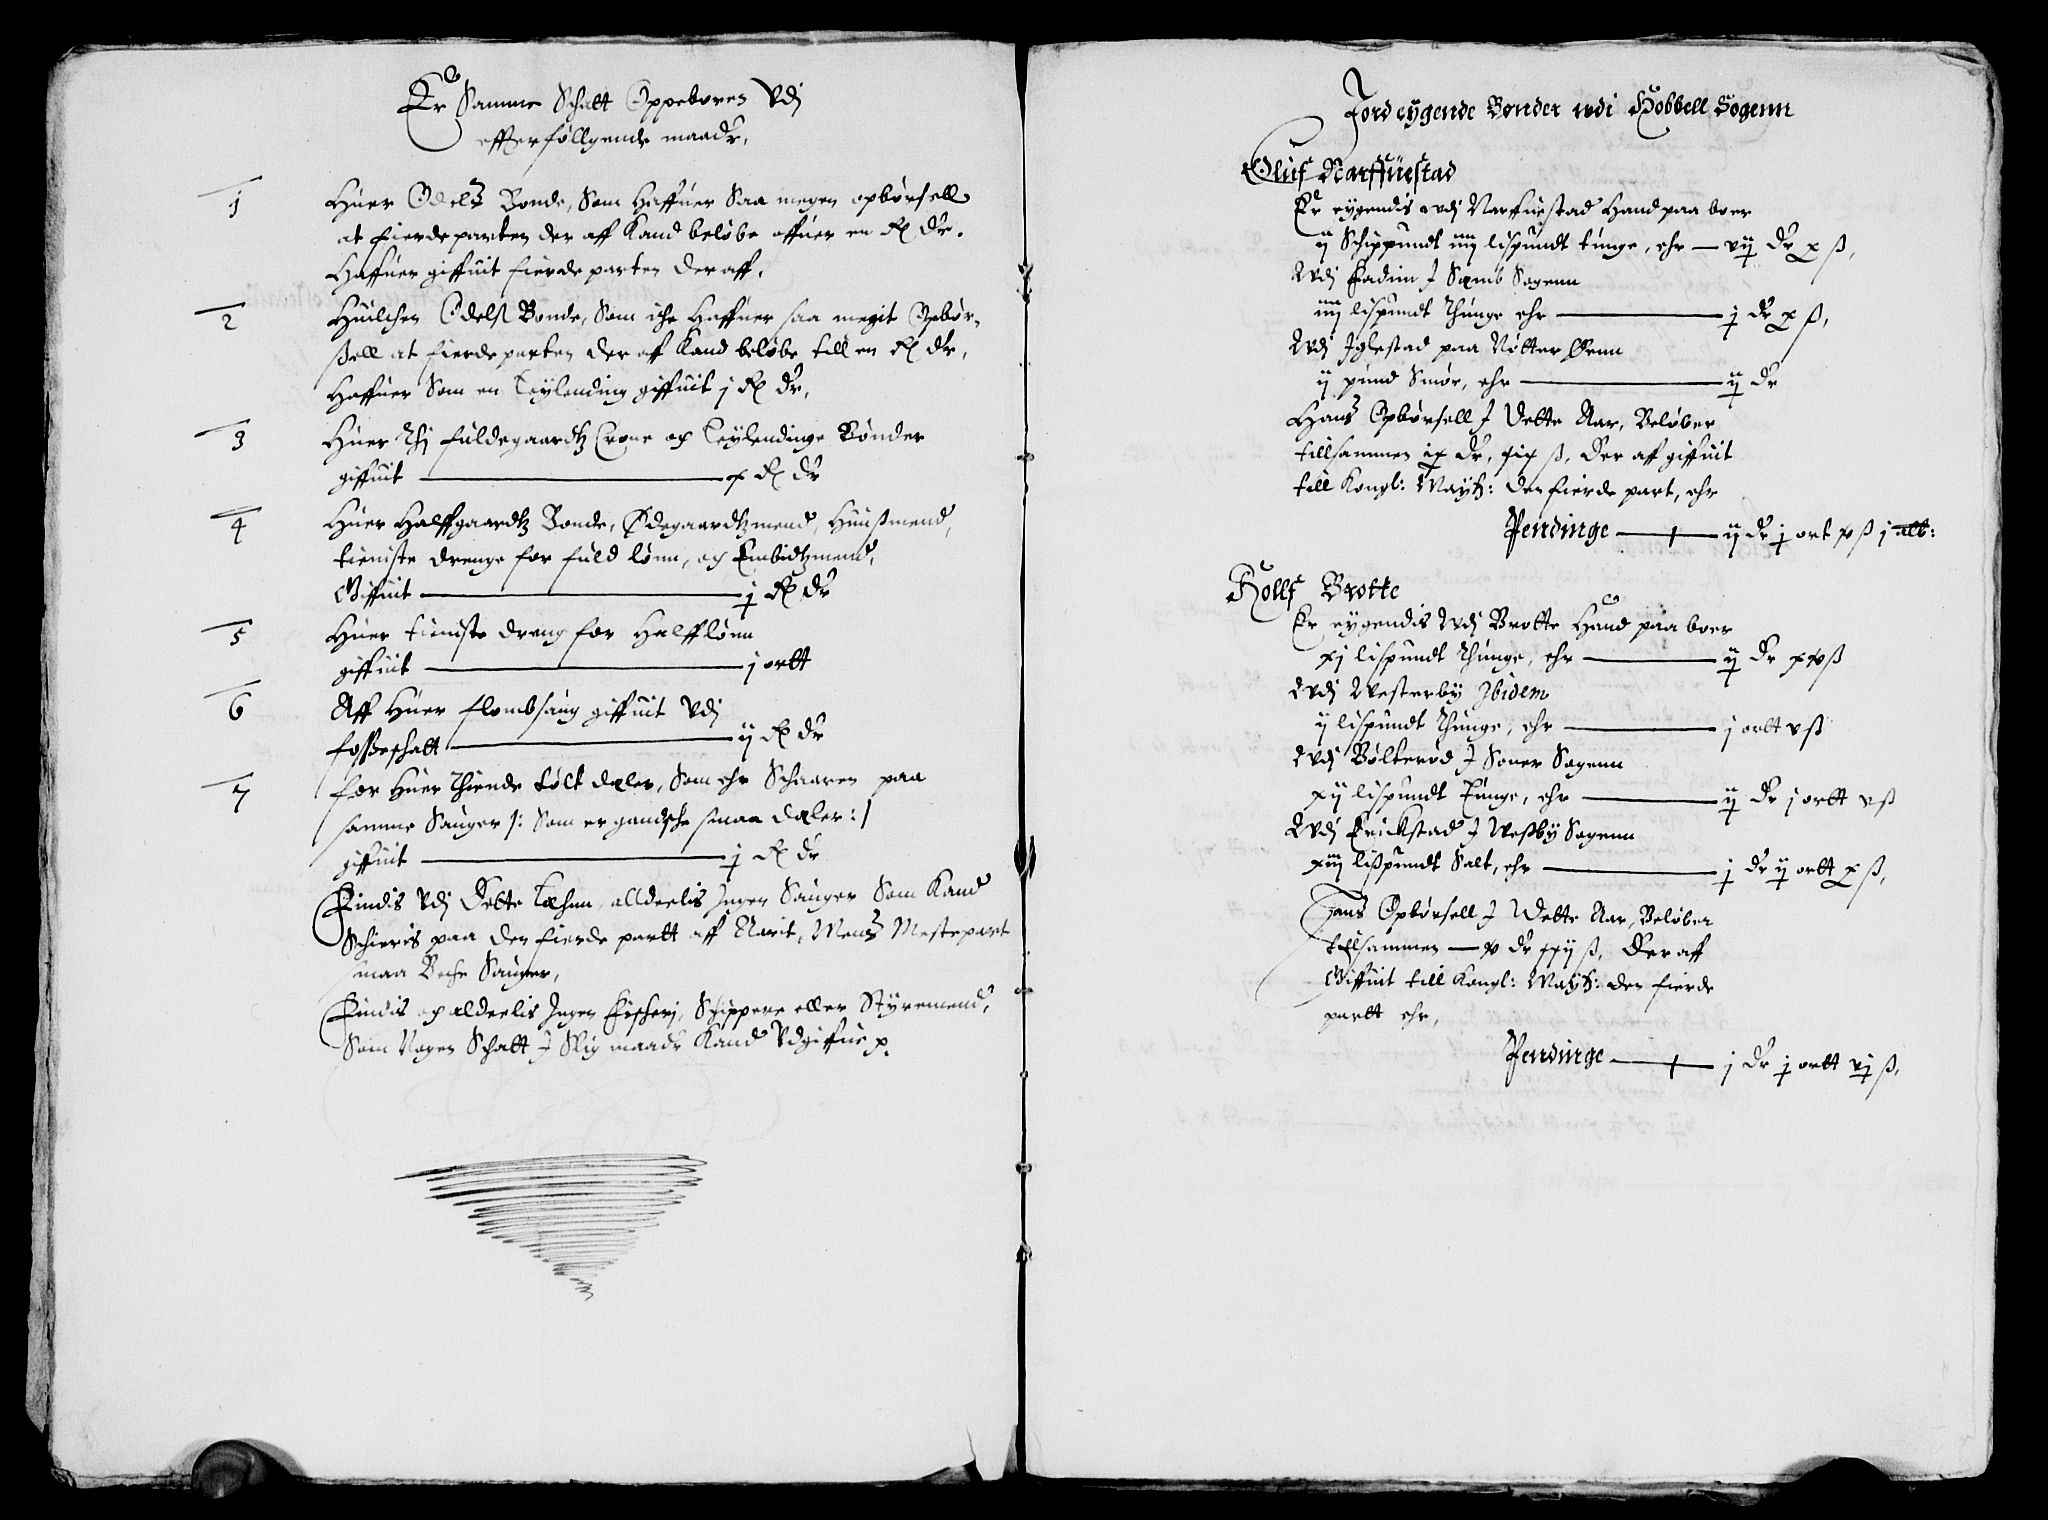 Er Samme Schatt Oppeboren Vdj
effterføllgende maade,
1 Huer Odels Bonde, Som Haffuer Saa megen opbørsell
at fierde parten der aff Kand beløbe offuer en R dr.
Haffuer giffuit fierde parten der aff,
2 Huilchen Odels Bonde, Som iche Haffuer saa megit Opbør-
ßell at fierde parten der aff Kand beløbe till en R dr,
Haffuer Som en Leylending giffuit j R dr,
3 Huer Thj fuldegaardtz Crone og Leylendinge Bønder
giffuit — x R dr
4 Huer Halffgaardtz Bonde, Ødegaardtzmend, Huußmend,
tieniste drenge for fuld lønn, og Embidtzmend,
Giffuit — j R dr
5 Huer tieniste dreng for Halff lønn
giffuit — j ortt
6 Aff Huer flombsaug giffuit Vdj
foßeschatt — ij R dr
7 for Huer Thiende tølt daler, Som ehr Schaaren paa
samme Sauger /: Som er gandsche smaa daler :/
giffuit — j R dr
Findis Vdj Dette Læhnn, alldeelis Ingen Sauger Som Kand
Schieris paa den fierde partt aff Aarit, Mens Mestepart
smaa Beche Sauger,
Findis og aldeelis Ingen Fischerj, Schippere eller Styremend,
Som Nogen Schatt J Slig maade Kand Vdgiffue p.
Jordeygende Bønder udi Hobbell Sogenn
Oluf Narffuestad
Er eygendis udj Narffuestad Hand paa boer
ij Schippundt iiij lispundt tunge, ehr — vij dr x ß,
Vdj Fadim J Samb Sogenn
iiij lispundt Thunge ehr — j dr x ß,
Vdj Jglestad paa Nøtter Øenn
ij pund Smør, ehr — ij dr
Hans Opbørsell J Dette Aar, Beløber
tillsammen ix dr, xix ß, Der aff giffuit
till Kongl: Maytt: den fierde part, ehr
Pendinge — ij dr j ort xv ß j alb:
Rollf Brotte
Er eygendis Vdj Brotte Hand paa boer
xj lispundt Thunge, ehr — ij dr xxv ß
Vdj Westerby Ibidem
ij lispundt Thunge, ehr — j ortt v ß
Vdj Bølterød J Soner Sogenn
xij lispundt Tunge, ehr — ij dr j ortt v ß
Vdj Erickstad J Westby Sogenn
xiij lispundt Salt, ehr — j dr ij ortt x ß,
Hans Opbørsell J Dette Aar, Beløber
tillsammen — v dr xxij ß, Der aff
Giffuit till Kongl: Maytt: den fierde
partt ehr,
Pendinge — j dr j ortt vj ß,